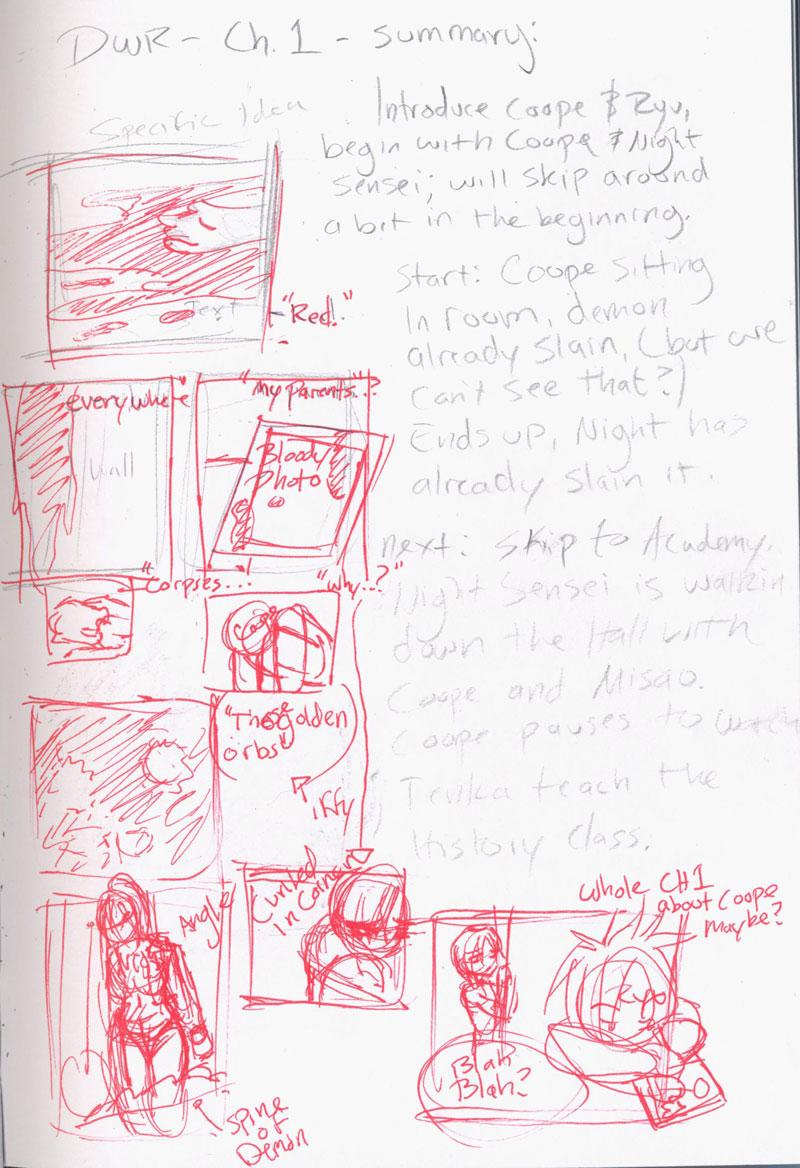 DWR - Ch. 1 - summary:
Specific Idea
Introduce Coope & Ryu,
begin with Coope & Night
Sensei; will skip around
a bit in the beginning.
Start: Coope sitting
In room, demon
already slain, (but we
can't see that?)
Ends up, Night has
already slain it.
next: skip to Academy.
Night Sensei is walkin
down the Hall with
Coope and Misao.
Coope pauses to watch
Tevika teach the
History class.
Text
"Red."
everywhere"
Wall
"my Parents..?
Bloody
Photo
"Corpses...
"Why...?"
Coope
"Those Golden
orbs"
iffy
Angle
Curled
In Corner
Whole CH1
about Coope
Maybe?
Ryu
Blah
Blah?
Spine
of
Demon